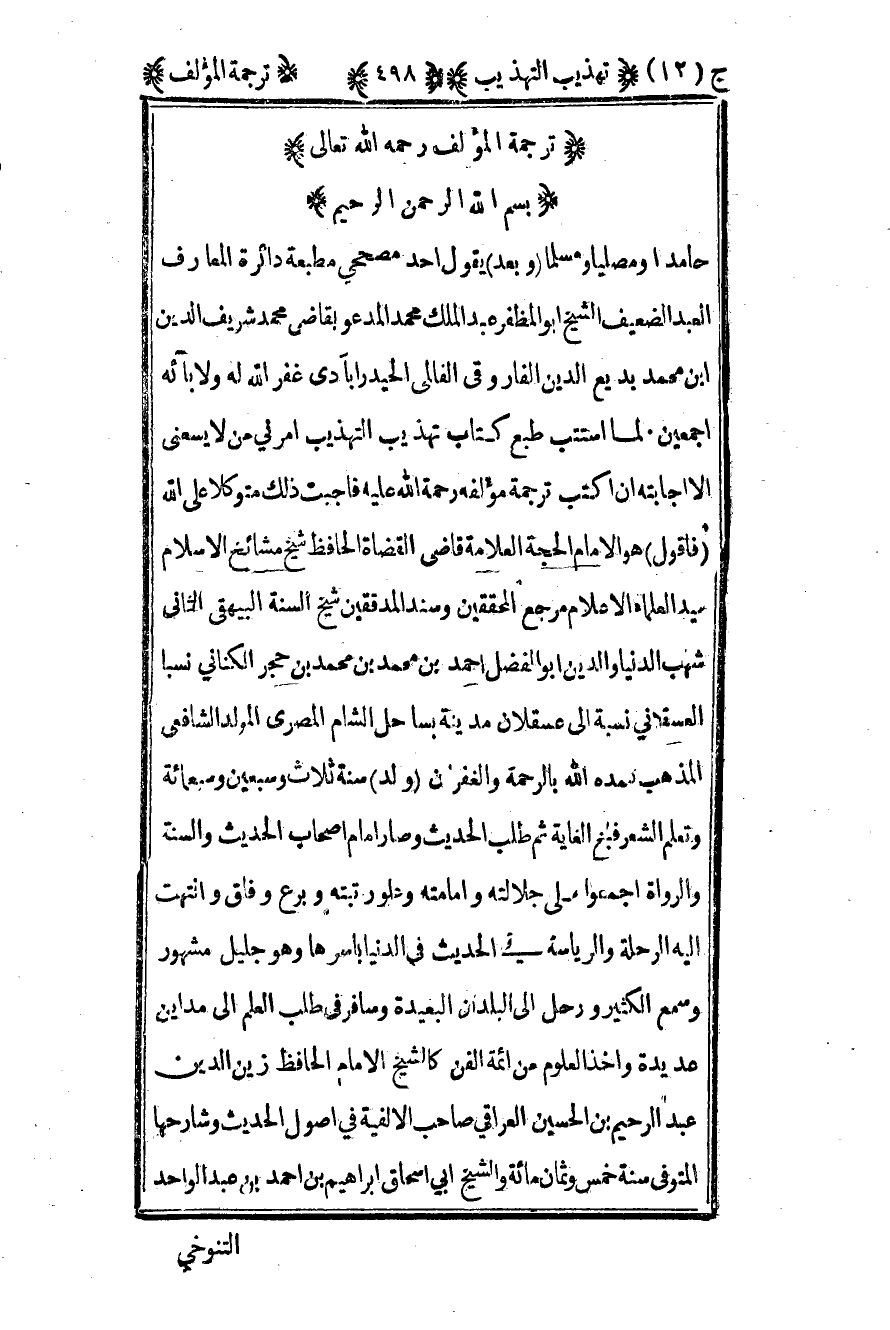 ج (١٢) ﴿ تهذيب التهذيب ﴾ ﴿ ٤٩٨ ﴾ ﴿ ترجمة المؤلف ﴾
﴿ ترجمة المؤلف رحمه الله تعالى ﴾
﴿ بسم الله الرحمن الرحيم ﴾
حامدا ومصليا ومسلما (وبعد) يقول احد مصححي مطبعة دائرة المعارف
العبد الضعيف الشيخ ابو المظفر عبد الملك محمد المدعو بقاضي محمد شريف الدين
ابن محمد بديع الدين الفاروقى الفالى الحيدرآبادى غفر الله له ولابآئه
اجمعين٠ لما استتب طبع كتاب تهذيب التهذيب امرني من لا يسعنى
الا اجابته ان اكتب ترجمة مؤلفه رحمة الله عليه فاجبت ذلك متوكلا على الله
(فاقول) هو الامام الحجة العلامة قاضى القضاة الحافظ شيخ مشائخ الاسلام
سيد العلماء الاعلام مرجع المحققين وسند المدققين شيخ السنة البيهقى الثانى
شهب الدنيا والدين ابو الفضل احمد بن محمد بن محمد بن حجر الكناني نسبا
العسقلاني نسبة الى عسقلان مدينة بساحل الشام المصرى المولد الشافعى
المذهب تغمده الله بالرحمة والغفرن (ولد) سنة ثلاث وسبعين وسبعمائة
وتعلم الشعر فبلغ الغاية ثم طلب الحديث وصار امام اصحاب الحديث والسنة
والرواة اجمعوا على جلالته وامامته وعلو رتبته وبرع وفاق وانتهت
اليه الرحلة والرياسة في الحديث في الدنيا باسرها وهو جليل مشهور
وسمع الكثير ورحل الى البلدان البعيدة وسافر فى طلب العلم الى مداين
عديدة واخذ العلوم من ائمة الفن كالشيخ الامام الحافظ زين الدين
عبد الرحيم بن الحسين العراقي صاحب الالفية في اصول الحديث وشارحها
المتوفى سنة خمس وثمان مائة والشيخ ابي اسحاق ابراهيم بن احمد بن عبد الواحد
التنوخي